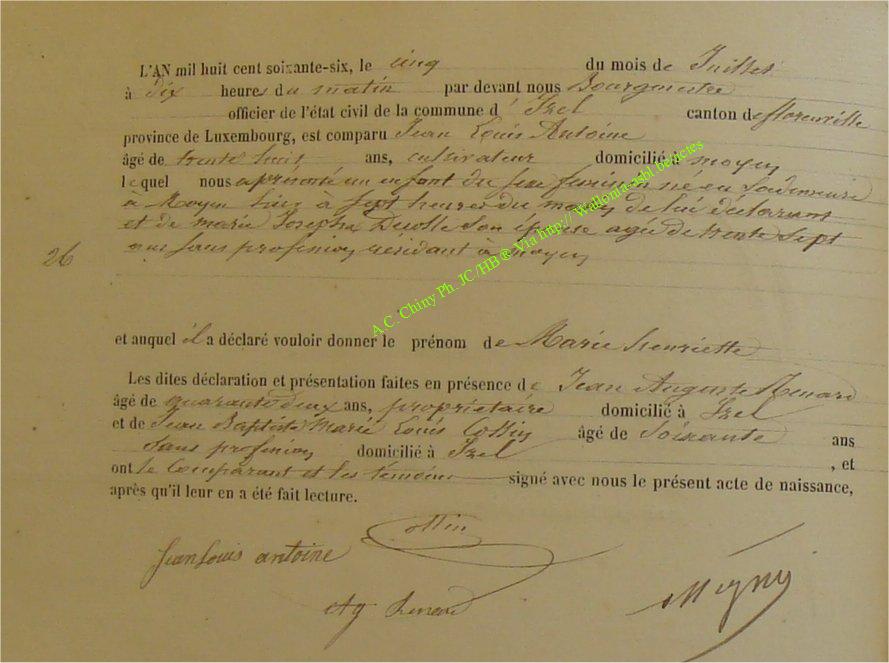 L'AN mil huit cent soixante-six, le cinq du mois de Juillet
à dix heures du matin par devant nous Bourgmestre
officier de l'état civil de la commune d'Izel canton de florenville
province de Luxembourg, est comparu Jean Louis Antoine
âgé de trente huit ans, cultivateur domicilié à moyen
lequel nous a présenté un enfant du sexe féminin né en sa demeure
a Moyen hier à sept heures du matin de lui déclarant
et de marie Josephe son épouse agée de trente sept
ans sans profession résidant à moyen
26
et auquel il a déclaré vouloir donner le prénom de Marie henriette
Les dites déclaration et présentation faites en présence de Jean Auguste
âgé de quarante deux ans, propriétaire domicilié à Izel
et de Jean Baptiste Marie Louis Collin âgé de soixante ans
sans profession domicilié à Izel , et
ont le Comparant et les témoins signé avec nous le présent acte de naissance,
après qu'il leur en a été fait lecture.
Jean Louis antoine
A.C. Chiny Ph. JC /HB @ Via http:// Wallonia-asbl.be/actes